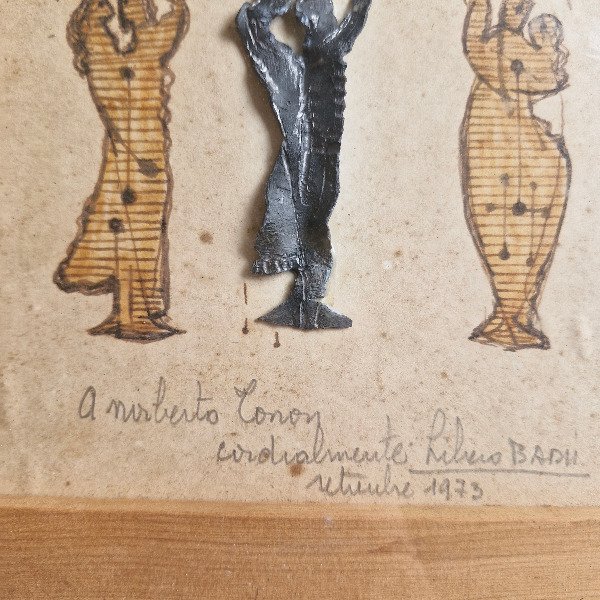 A norberto Coroy
cordialmente Libero BADII
setiembre 1973